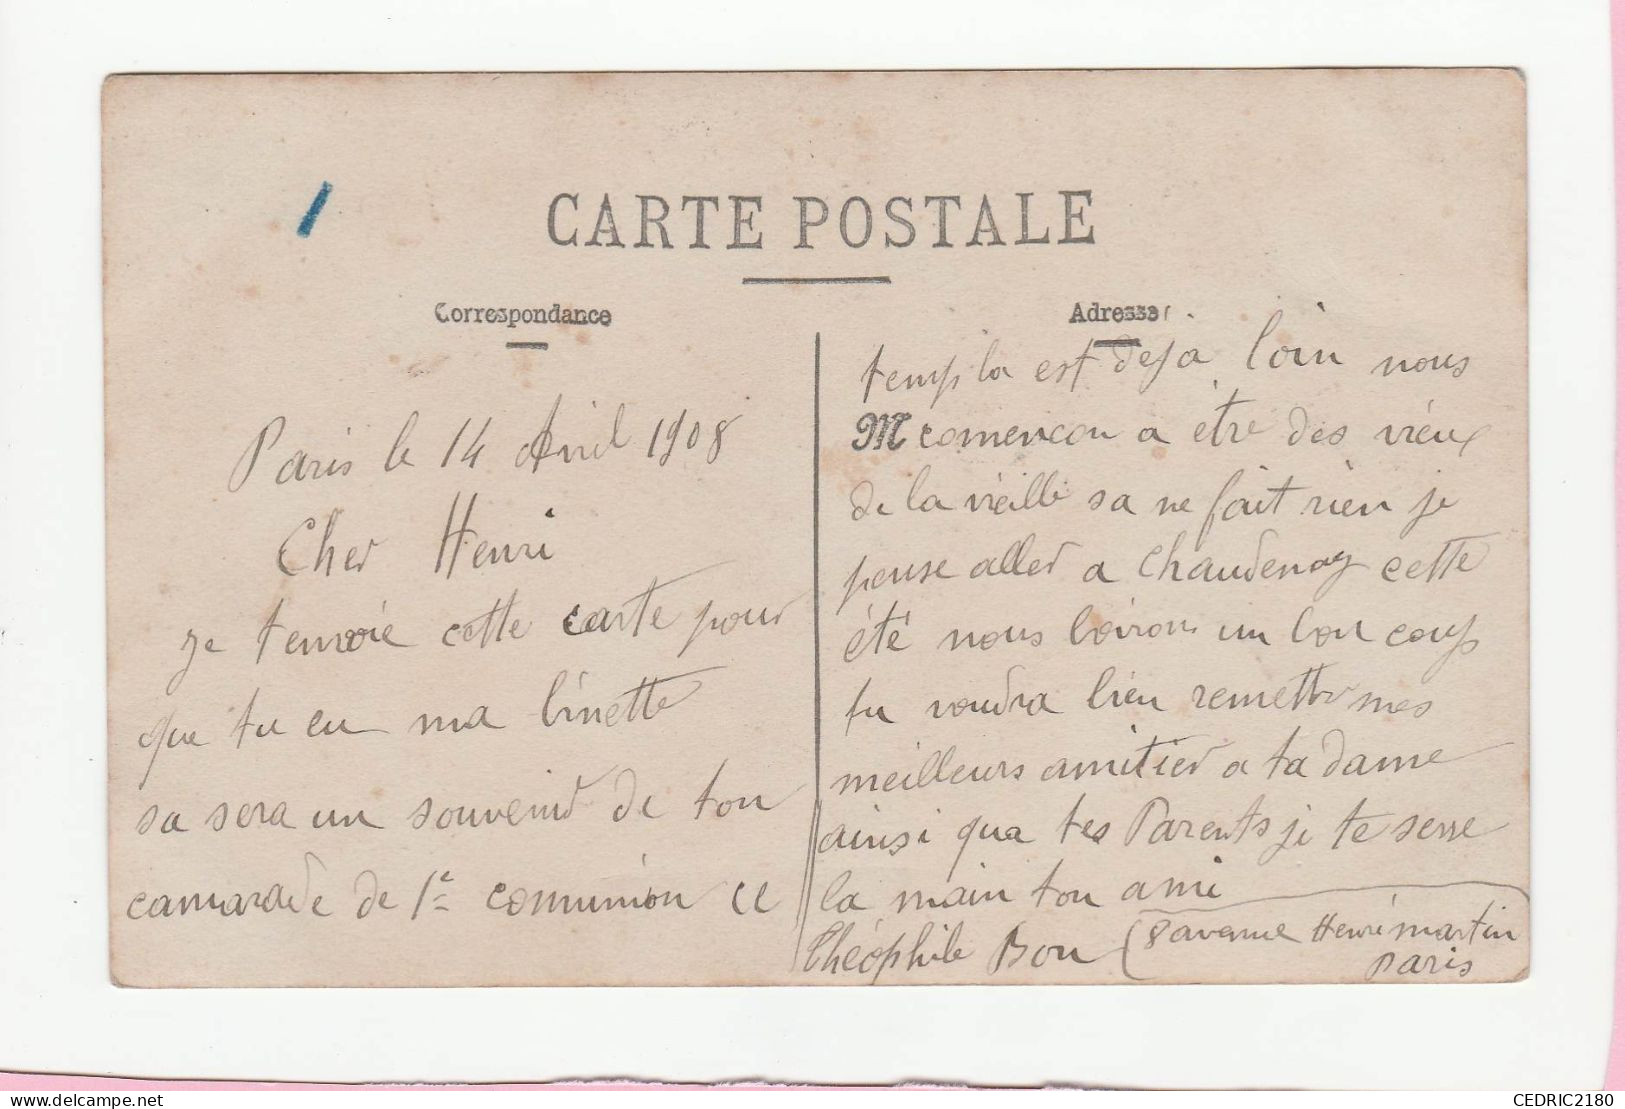 CARTE POSTALE
Correspondance
Paris le 14 Avril 1908
Cher Henri
je t'envoie cette carte pour
que tu eu ma binette
sa sera un souvenir de ton
camarade de 1e comunion ce
Adresse
temp la est deja loin nous
M comencon a être des vieux
de la vieille sa ne fait rien je
pense aller a Chaudenay cette
été nous boirons un bon coup
tu voudra bien remettre mes
meilleurs amitier a ta dame
ainsi qua tes Parents je te serre
la main ton ami
Théophile Bon (8 avenue Henri martin
Paris
CEDRIC2180